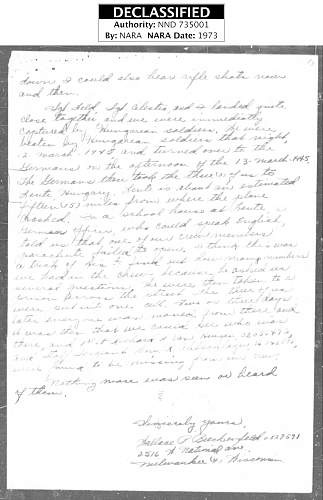 DECLASSIFIED
Authority: NND 735001
By: NARA NARA Date: 1973
down I could also hear rifle shots now
and then.
Sgt Held, Sgt and I landed quite
close together and we were immediately
captured by Hungarian soldiers. We were
beaten by Hungarian soldiers that night,
12 march 1945 and turned over to the
Germans in the afternoon of the 13 march 1945.
The Germans then took the three of us to
Hungary. is about an estimated
fifteen (15) miles from where the plane
crashed. In a school house at
German officer, who could speak English,
told us that one of our crew members
parachute failed to open. I think this was
a trick of his to find out how many members
we had in the crew, because he asked us
several questions. We were then taken to a
prison across the street. The three of us
were put in one cell. Two or three days
later everyone was moved from there and
it was then that we could see who was
there, and
were found to be missing from our crew.
Nothing more was seen or heard
of them.
Sincerely yours,
Wallace
2516 National ave
Milwaukee Wisconsin